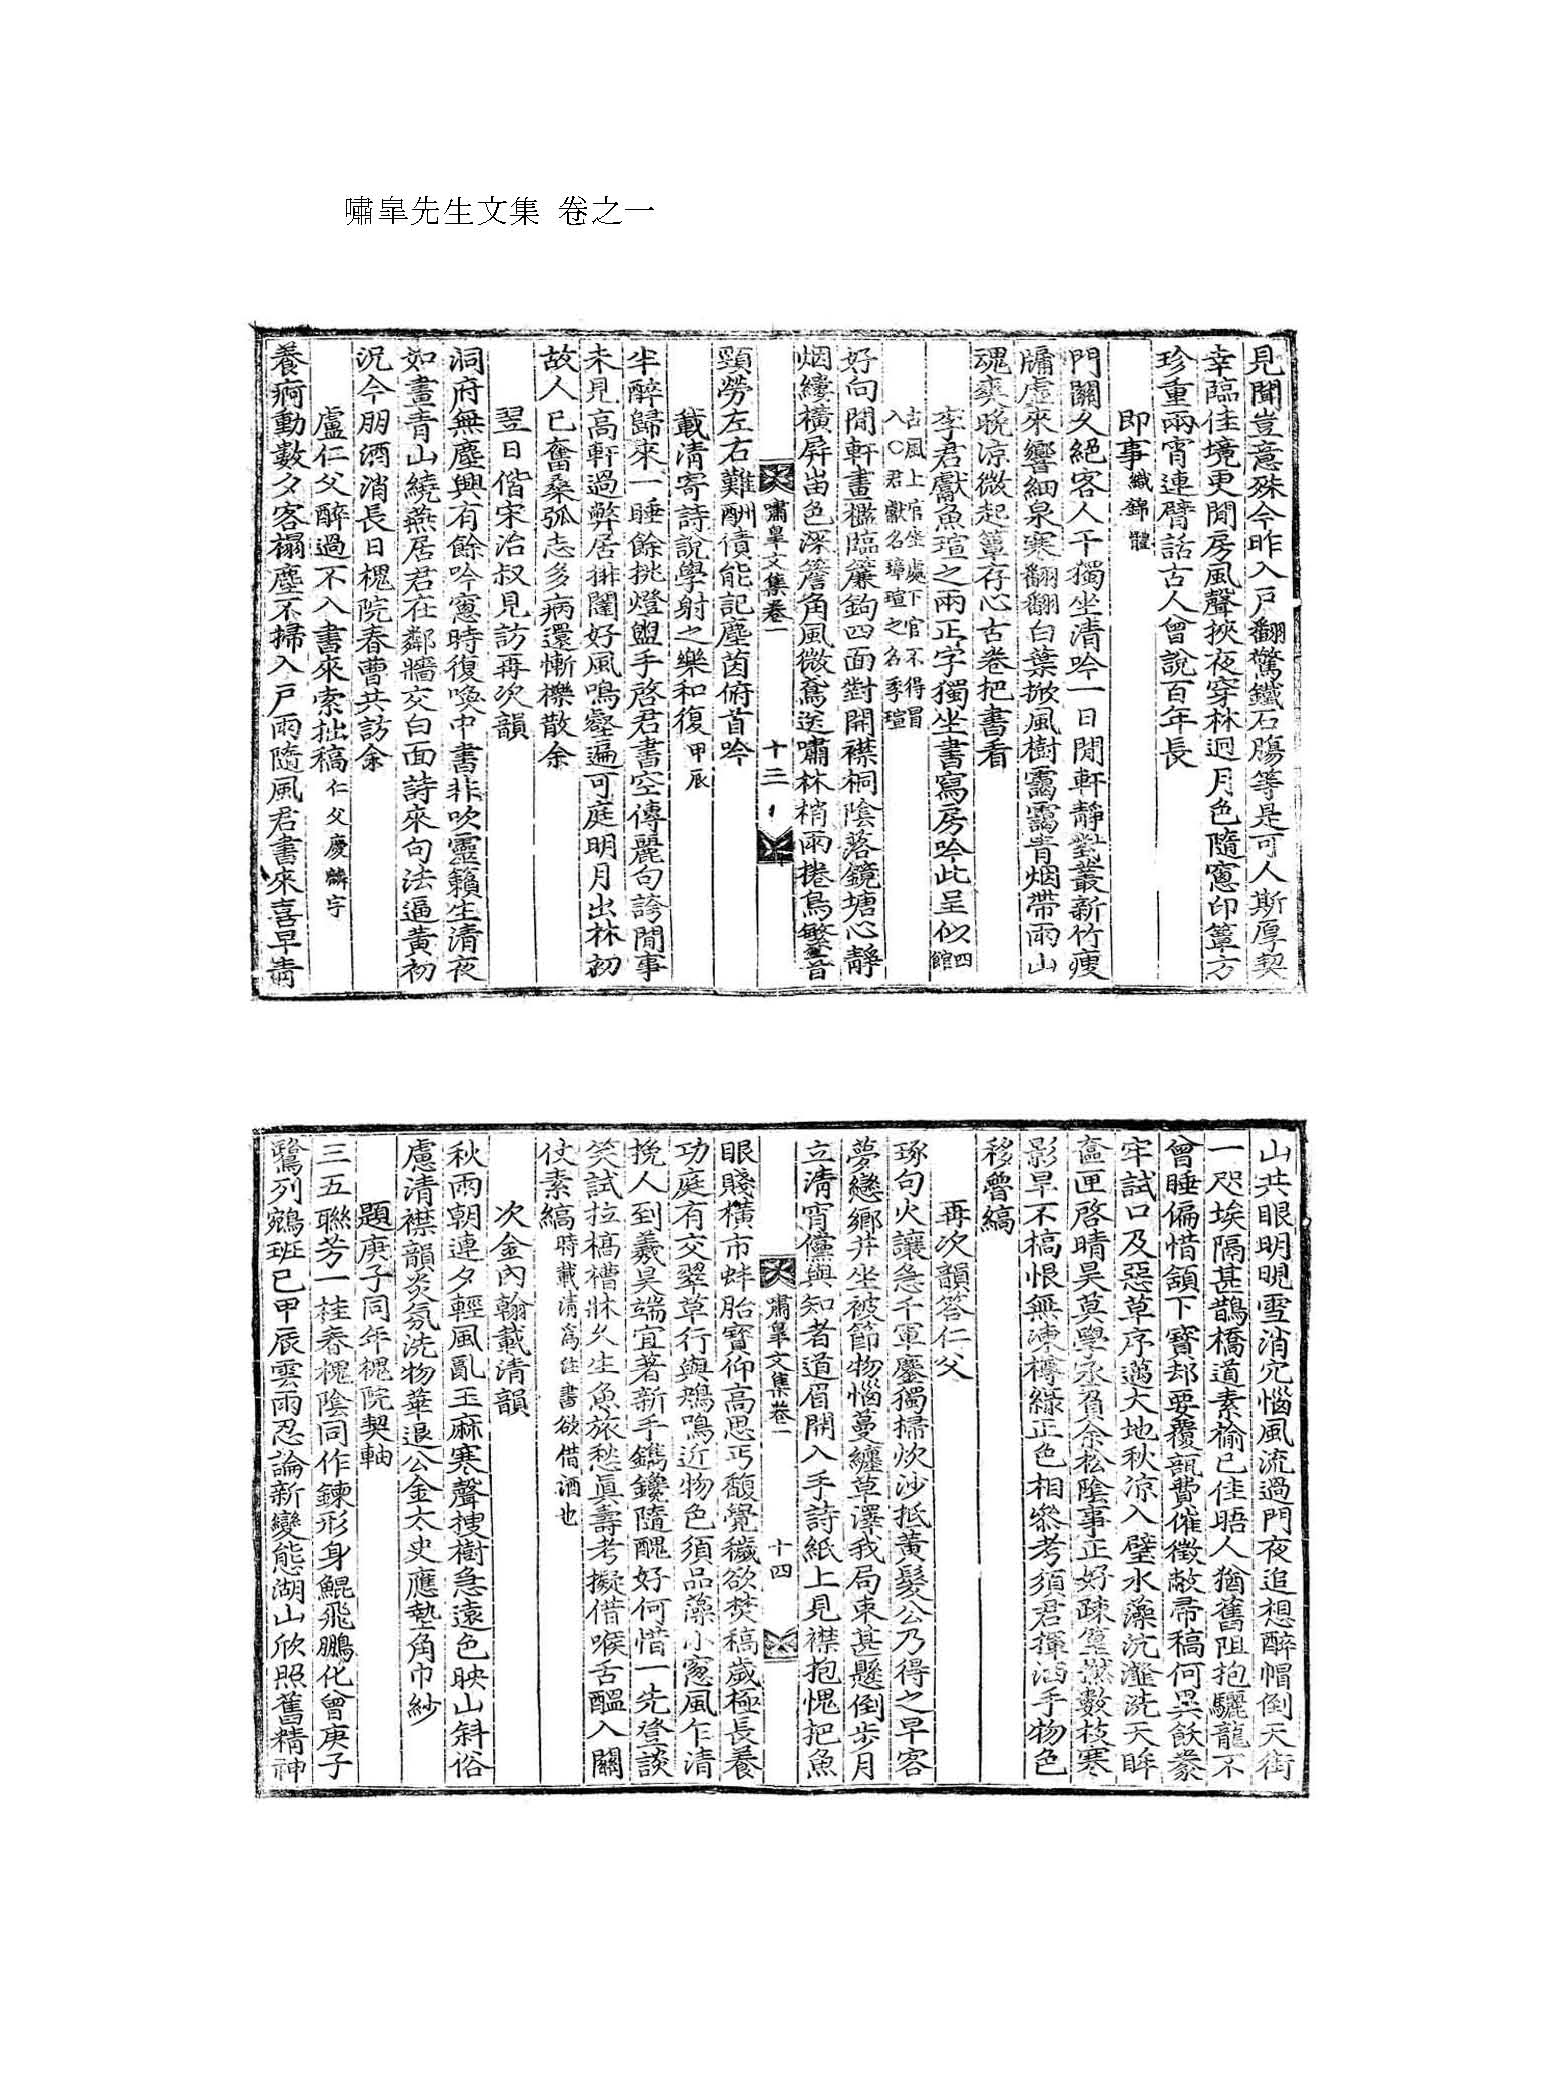 嘯皐先生文集 卷之一
見聞豈意殊今昨入戶翻驚鐵石膓等是可人斯厚契
幸臨佳境更閒房風聲挾夜穿林逈月色隨窻印簟方
珍重兩宵連臂話古人曾說百年長
即事 織錦體
門關久絕客人干獨坐清吟一日閒軒靜對叢新竹瘦
牗虛來響細泉寒翻翻白葉掀風樹靄靄青烟帶雨山
魂爽晚凉微起簟存心古卷把書看
李君獻魚瑄之兩正字獨坐書寫房吟此呈似 四館
古風上官坐處下官不得冒
入○君獻名璋瑄之名季瑄
好句閒軒畫檻臨簾鉤四面對開襟桐陰落鏡塘心靜
烟縷橫屏岫色深簷角風微鴌送嘯林梢雨捲鳥繁音
嘯皐文集卷一 十三
頸勞左右難酬債能記塵茵俯首吟
載清寄詩說學射之樂和復 甲辰
半醉歸來一睡餘挑燈盥手啓君書空傳麗句誇閒事
未見高軒過弊居排闥好風鳴壑遍可庭明月出林初
故人已奮桑弧志多病還慚櫟散余
翌日偕宋治叔見訪再次韻
洞府無塵興有餘吟窻時復喚中書非吹靈籟生清夜
如畫青山繞燕居君在鄰牆交白面詩來句法逼黃初
況今朋酒消長日槐院春曹共訪余
盧仁父醉過不入書來索拙稿 仁父慶麟字
養痾動數夕客榻塵不掃入戶雨隨風君書來喜早靑
山共眼明晛雪消宂惱風流過門夜追想醉帽倒天街
一咫埃隔甚鵲橋道素榆已佳晤人猶舊阻抱驪龍不
曾睡偏惜頷下寶却要覆瓿費催徵敝帚稿何異飫豢
牢試口及惡草序邁大地秋凉入壁水藻沆瀣洗天眸
奩匣啓晴昊莫學丞負余松陰事正好疎篁憖數枝寒
影早不槁恨無凍樽綠正色相叅考須君揮洒手物色
移魯縞
再次韻答仁父
琢句火讓急千軍鏖獨掃炊沙抵黃髮公乃得之早客
夢戀鄉井坐被節物惱蔓纏草澤我局束甚懸倒步月
立淸宵儻與知者道眉開入手詩紙上見襟抱愧把魚
嘯皐文集卷一 十四
眼賤橫市蚌胎寶仰高思丐馥覺穢欲焚稿歲極長養
功庭有交翠草行與鳺鳴近物色須品藻小窻風乍清
挽人到羲昊端宜著新手鐫鑱隨醜好何惜一先登談
笑試拉槁槽牀久生魚旅愁眞壽考擬借喉舌醞入關
仗素縞 時載清爲注書欲借酒也
次金內翰載清韻
秋雨朝連夕輕風亂玉麻寒聲捜樹急遠色映山斜俗
慮清襟韻炎氛洗物華退公金太史應墊角巾紗
題庚子同年槐院契軸
三五聯芳一桂春槐陰同作鍊形身鯤飛鵬化曾庚子
鷺列鵷班已甲辰雲雨忍論新變態湖山欣照舊精神